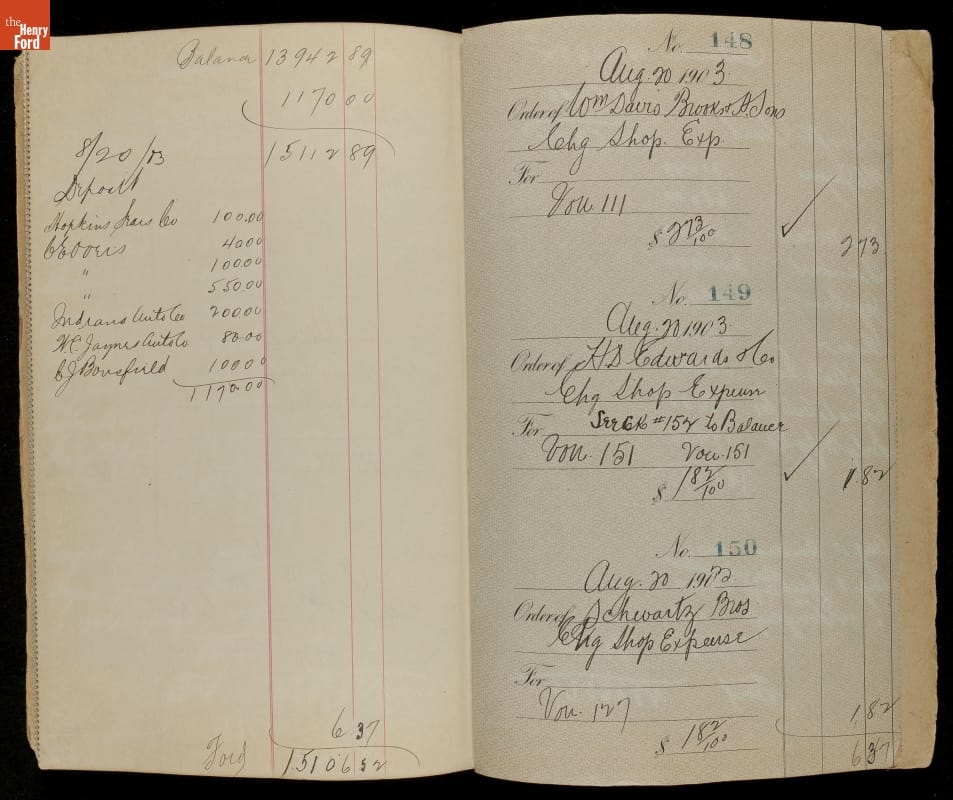 the Henry Ford
Balance 13942 89
1170 00
8/20/03 15112 89
Deposit
Hopkins Sears Co 100.00
40.00
" 100.00
" 550.00
Indiana Auto Co 200.00
H.C. Jaynes Auto Co 80.00
C J Bousfield 100.00
1170.00
6 37
Ford 15106 52
No. 148
Aug. 20 1903
Order of Wm Davis Brooks & Sons
Chg Shop. Exp.
For
Vou 111
$ 2 73/100
2 73
No. 149
Aug. 20 1903
Order of H D Edwards & Co
Chg Shop Expense
For See Ck #152 to Balance
Vou. 151 Vou. 151
$ 1 82/100
1.82
No. 150
Aug. 20 1903
Order of Schwartz Bros
Chg Shop Expense
For
Vou. 127
$ 1 82/100
1.82
6 37